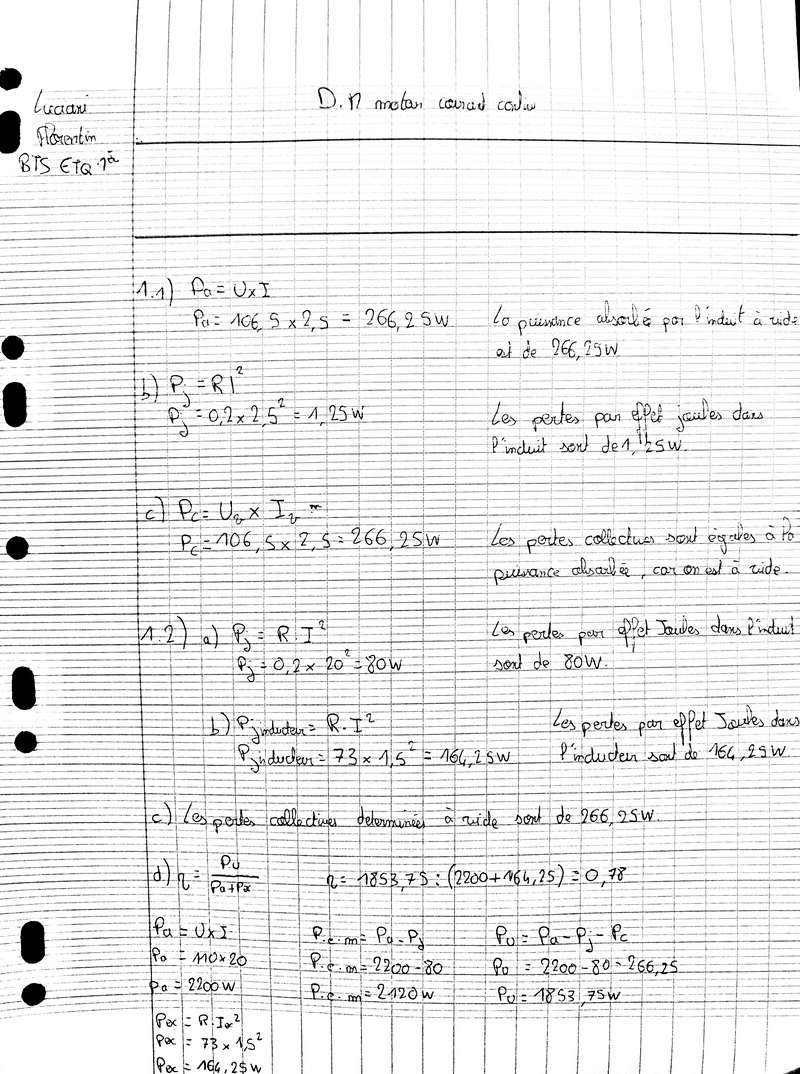 Luciani
Florentin
BTS ETQ 1a
D.M moteur courant continu
1.1) Pa = U x I
Pa = 106,5 x 2,5 = 266,25W
La puissance absorbée par l'induit à vide
est de 266,25W
b) Pj = RI²
Pj = 0,2 x 2,5² = 1,25W
Les pertes par effet joules dans
l'induit sont de 1,25W.
c) Pc = Uv x Iv
Pc = 106,5 x 2,5 = 266,25W
Les pertes collectives sont égales à la
puissance absorbée, car on est à vide.
1.2) a) Pj = R.I²
Pj = 0,2 x 20² = 80W
Les pertes par effet Joules dans l'induit
sont de 80W.
b) Pj inducteur = R.I²
Pj inducteur = 73 x 1,5² = 164,25W
Les pertes par effet Joules dans
l'inducteur sont de 164,25W
c) Les pertes collectives determinées à vide sont de 266,25W.
d) η = Pu / Pa+Pex
η = 1853,75 : (2200+164,25) = 0,78
Pa = U x I
Pa = 110x20
Pa = 2200W
P.e.m = Pa - Pj
P.e.m = 2200-80
P.e.m = 2120W
Pu = Pa - Pj - Pc
Pu = 2200-80-266,25
Pu = 1853,75W
Pex = R.Iex²
Pex = 73 x 1,5²
Pex = 164,25W